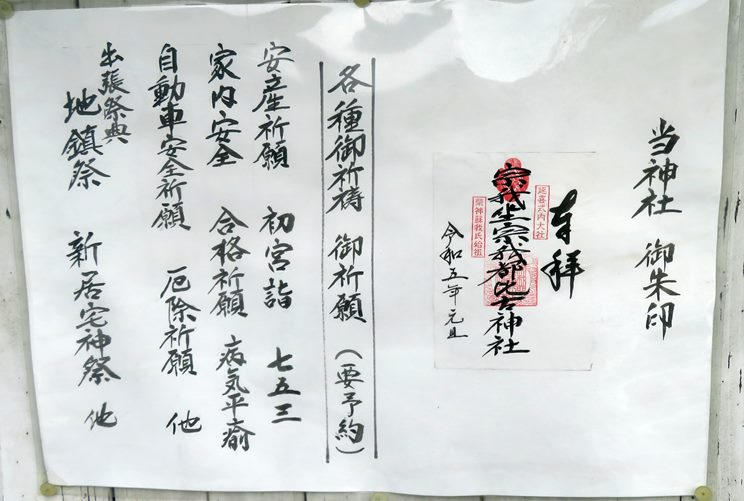 当神社 御朱印
奉拝
延喜式内大社
宗我坐宗我都比古神社
祭神蘇我氏始祖
令和五年元旦
各種御祈祷 御祈願 (要予約)
安産祈願 初宮詣 七五三
家内安全 合格祈願 病気平癒
自動車安全祈願 厄除祈願 他
出張祭典
地鎮祭 新居宅神祭 他